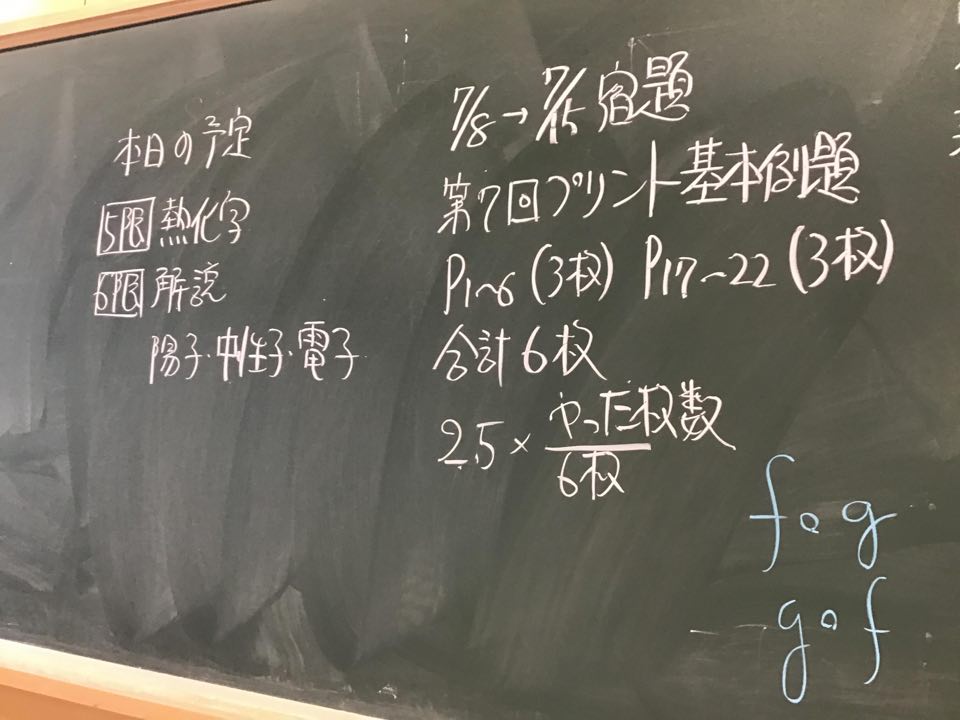 本日の予定
5限 熱化学
6限 解説
陽子・中性子・電子
7/8→7/15 宿題
第7回プリント基本例題
P1~6 (3枚) P17~22 (3枚)
合計6枚
2.5 × やった枚数/6枚
f∘g
g∘f